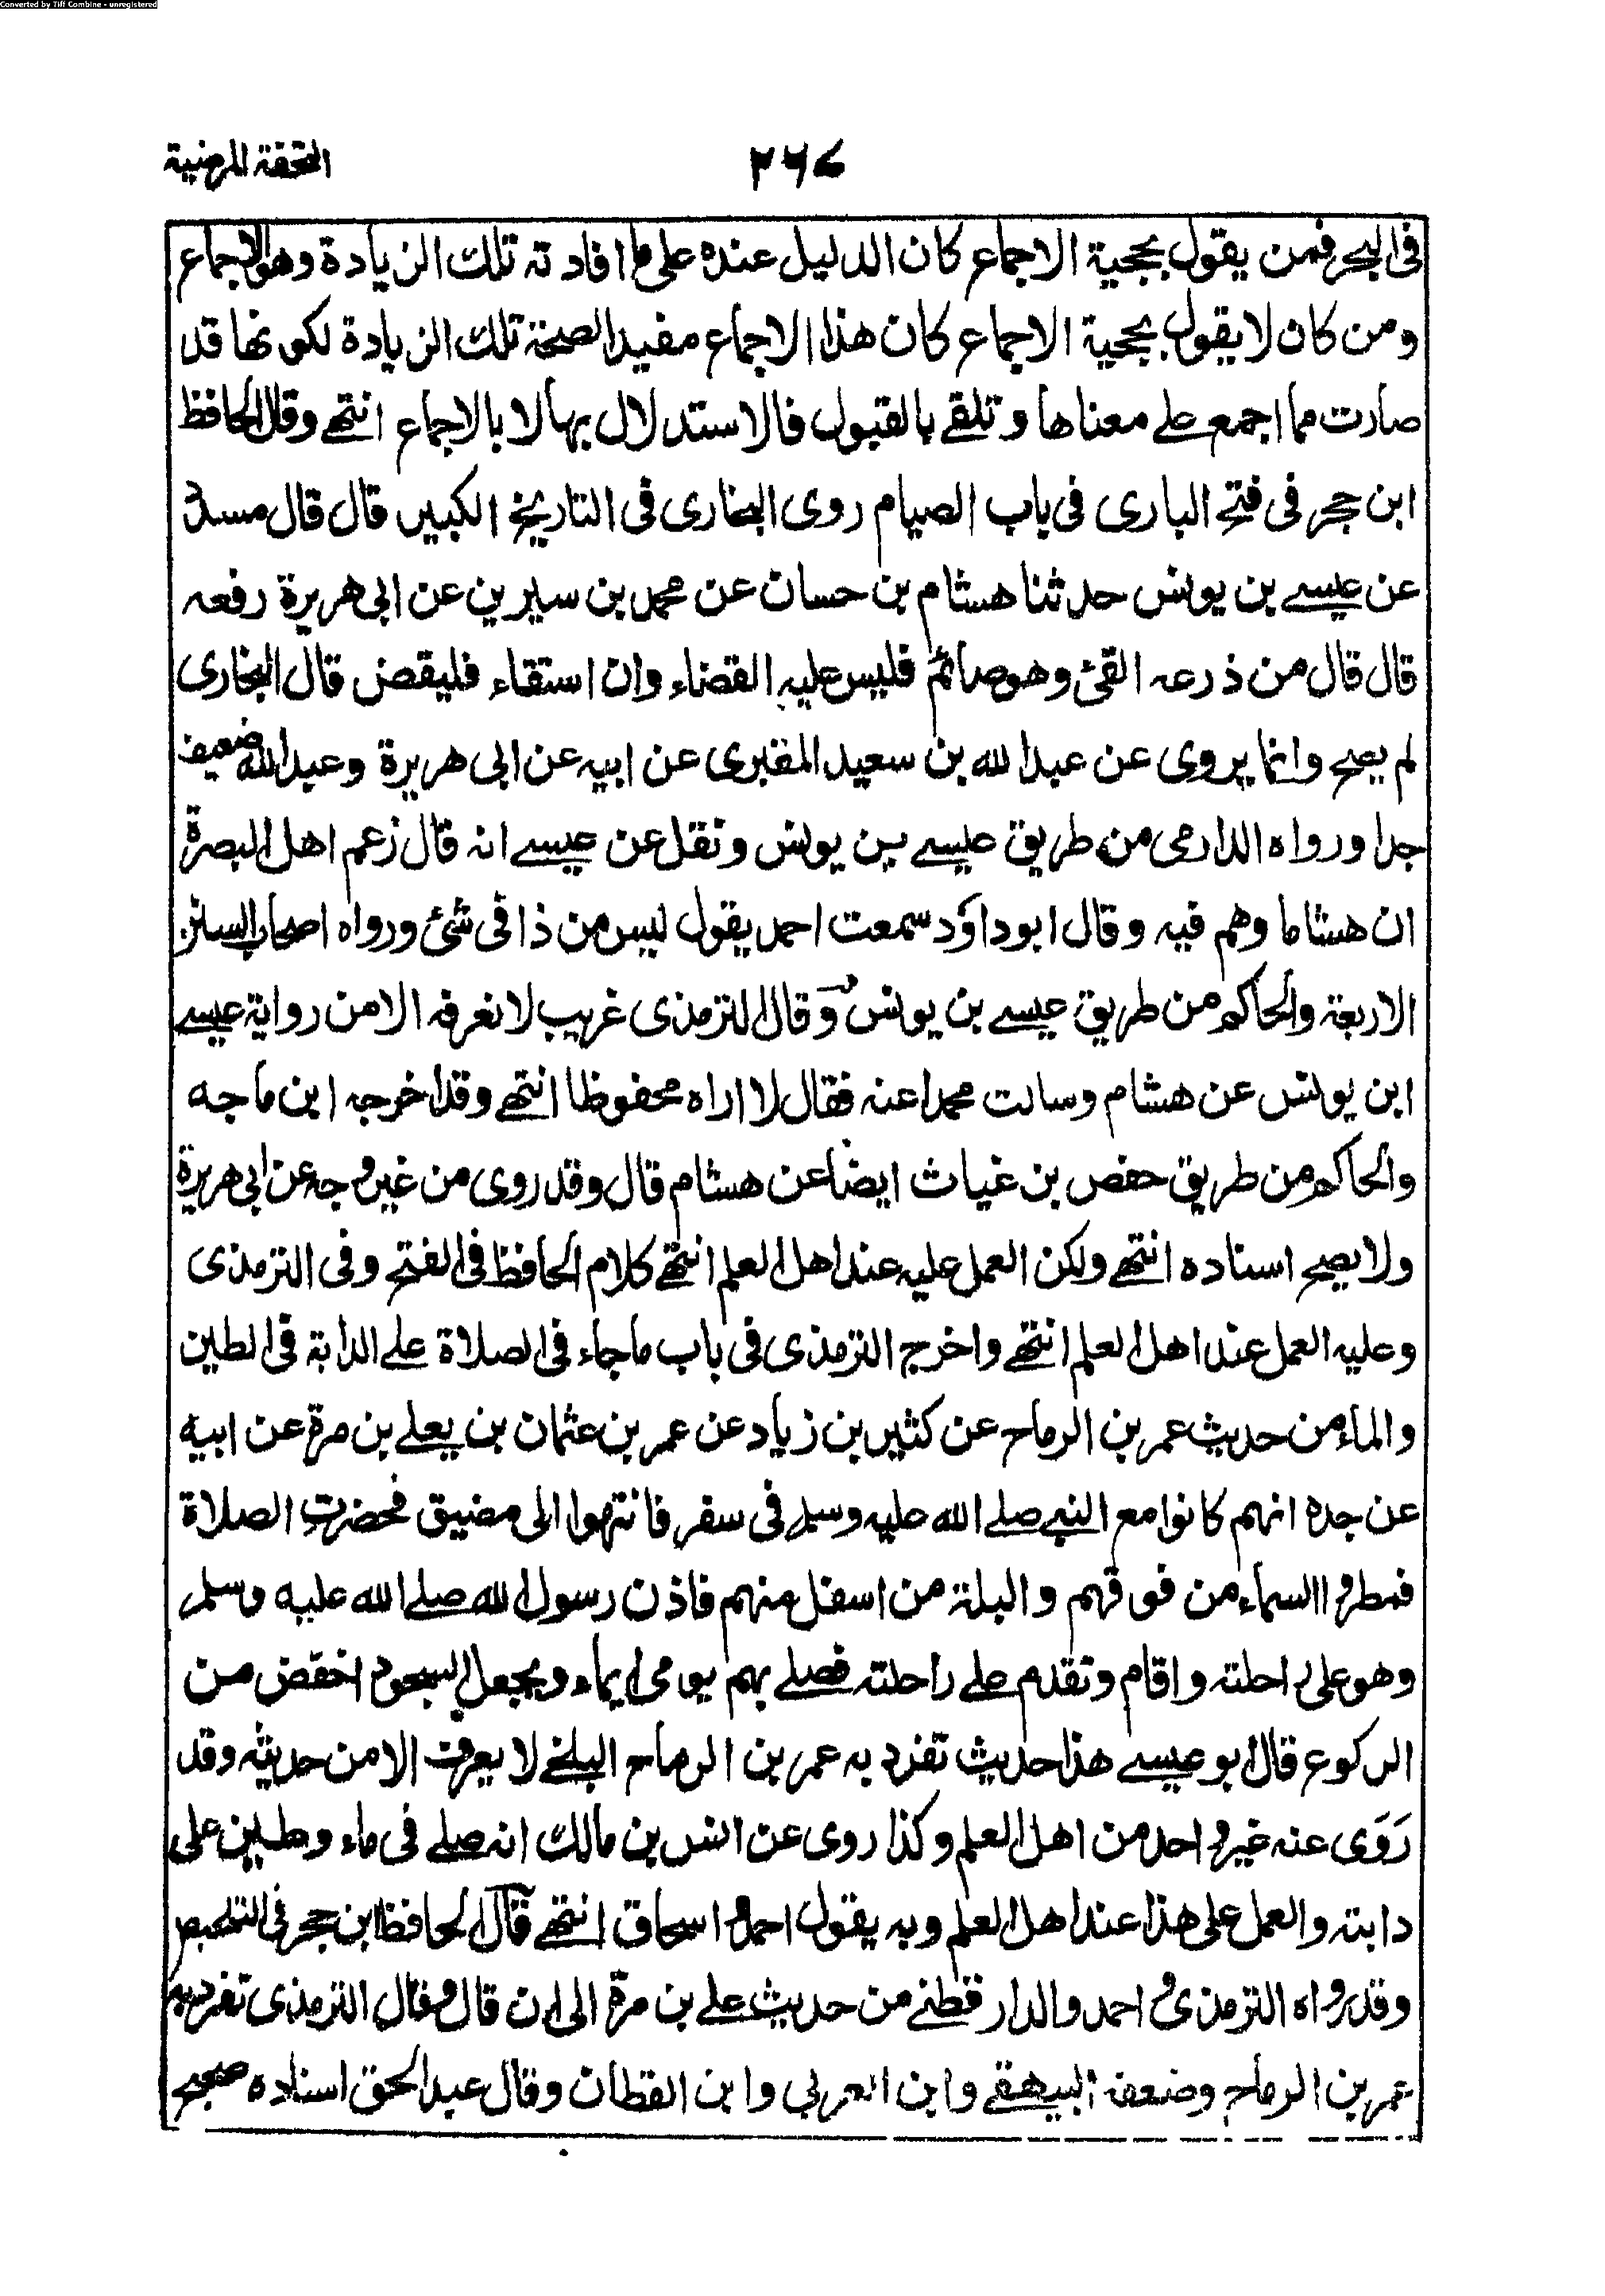 Converted by Tiff Combine - unregistered
التحفة المرضية
٢٦٧
فى البحر فمن يقول بحجية الاجماع كان الدليل عنده على ما افادته تلك الزيادة وهو الاجماع
ومن كان لا يقول بحجية الاجماع كان هذا الاجماع مفيد الصحة تلك الزيادة لكونها قد
صارت مما اجمع على معناها وتلقے بالقبول فالاستدلال بها لا بالاجماع انتهے وقال الحافظ
ابن حجر فى فتح البارى فى باب الصيام روى البخارى فى التاريخ الكبير قال قال مسدد
عن عيسے بن يونس حدثنا هشام بن حسان عن محمد بن سيرين عن ابى هريرة رفعه
قال قال من ذرعه القئ وهو صائم فليس عليه القضاء وان استقاء فليقض قال البخارى
لم يصح وانما يروى عن عبد الله بن سعيد المقبرى عن ابيه عن ابى هريرة وعبد الله ضعيف
جدا ورواه الدارمى من طريق عيسے بن يونس ونقل عن عيسے انه قال زعم اهل البصرة
ان هشاما وهم فيه وقال ابو داؤد سمعت احمد يقول ليس من ذا فى شئ ورواه اصحاب السنن
الاربعة والحاكم من طريق عيسے بن يونس وقال الترمذى غريب لا نعرفه الا من رواية عيسے
ابن يونس عن هشام وسالت محمدا عنه فقال لا اراه محفوظا انتهے وقد اخرجه ابن ماجه
والحاكم من طريق حفص بن غياث ايضا عن هشام قال وقد روى من غير وجه عن ابى هريرة
ولا يصح اسناده انتهے ولكن العمل عليه عند اهل العلم انتهے كلام الحافظ فى الفتح وفى الترمذى
وعليه العمل عند اهل العلم انتهے واخرج الترمذى فى باب ما جاء فى الصلاة على الدابة فى الطين
والماء من حديث عمر بن الرماح عن كثير بن زياد عن عمر بن عثمان بن يعلے بن مرة عن ابيه
عن جده انهم كانوا مع النبي صلے الله عليه وسلم فى سفر فانتهوا الى مضيق فحضرت الصلاة
فمطروا السماء من فوقهم والبلة من اسفل منهم فاذن رسول الله صلے الله عليه وسلم
وهو على راحلته واقام وتقدم على راحلته فصلے بهم يومى ايماء ويجعل السجود اخفض من
الركوع قال ابو عيسے هذا حديث تفرد به عمر بن الرماح البلخے لا يعرف الا من حديثه وقد
رَوَى عنه غير واحد من اهل العلم وكذا روى عن انس بن مالك انه صلے فى ماء وطين على
دابته والعمل على هذا عند اهل العلم وبه يقول احمد واسحاق انتهے قال الحافظ ابن حجر فى التلخيص
وقد رواه الترمذى و احمد والدار قطنے من حديث علے بن مرة الى ان قال وقال الترمذى تفرد به
عمر بن الرماح وضعفه البيهقے وابن العربى وابن القطان وقال عبد الحق اسناده صحيح